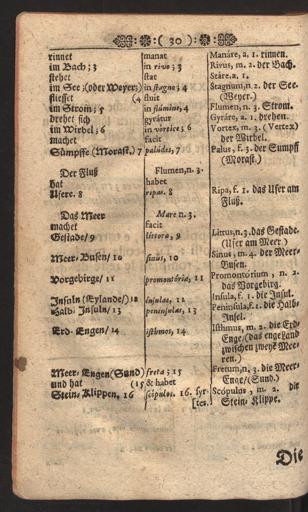 ( 30 )
rinnet manat Manáre, a. 1. rinnen.
im Bach; 3 in rivo; 3 Rivus, m. 2. der Bach.
stehet stat Stáre. a. 1.
im See (oder Weyer) in stagno; 4 Stagnum, n. 2. der See.
fliesset (4 fluit (Weyer.)
im Strom; 5 in flúmine; 4 Flumen, n. 3. Strom.
drehet sich gyrátur Gyráre, a. 1. drehen.
im Wirbel; 6 in vórtice; 6 Vortex, m. 3. (Vertex)
machet facit der Wirbel.
Sümpffe (Morast.) 7 palúdes; 7 Palus, f. 3. der Sumpff
(Morast.)
Der Fluß Flumen, n. 3.
hat habet
Ufere. 8 ripas. 8 Ripa, f. 1. das Ufer am
Fluß.
Das Meer Mare n. 3.
machet facit
Gestade/ 9 littora, 9 Littus, n. 3. das Gestade.
(Ufer am Meer.)
Meer-Busen/ 10 sinús, 10 Sinus, m. 4. der Meer-
Busen.
Vorgebirge/ 11 promontória, 11 Promontórium, n. 2.
das Vorgebirg.
Insuln (Eylande/) 12 ínsulas, 12 Insula, f. 1. die Insul.
Halb-Insuln/ 13 penínsulas, 13 Península, f. 1. die Halb-
Insel.
Erd-Engen/ 14 isthmos, 14 Isthmus, m. 2. die Erd-
Enge/ (das enge Land
zwischen zweye Mee-
ren.)
Meer-Engen (Sund) freta; 15 Fretum, n. 2. die Meer-
und hat (15 & habet Enge/ (Sund.)
Stein-Klippen. 16 scópulos. 16. Syr- Scópulus, m. 2. die
[tes. Stein-Klippe.
Die